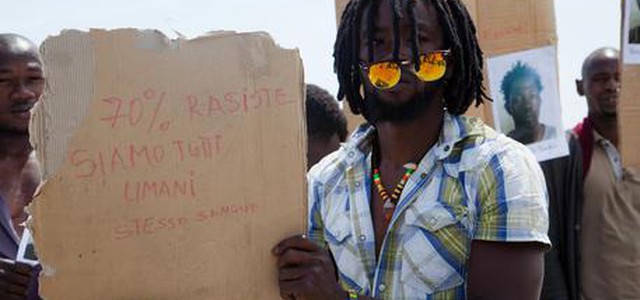 70% RASISTE
SIAMO TUTTI
UMANI
STESSO SANGUE